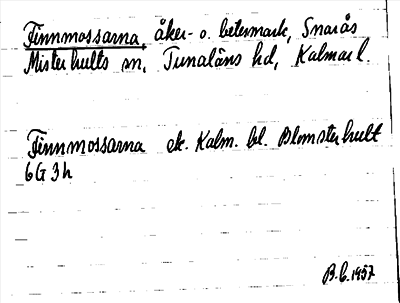 Finnmossarna, åker- o. betesmark, Snarås
Misterhults sn, Tunaläns hd, Kalmar l.
Finnmossarna ek. Kalm. bl. Blomsterhult
6G 3h
B.C. 1957